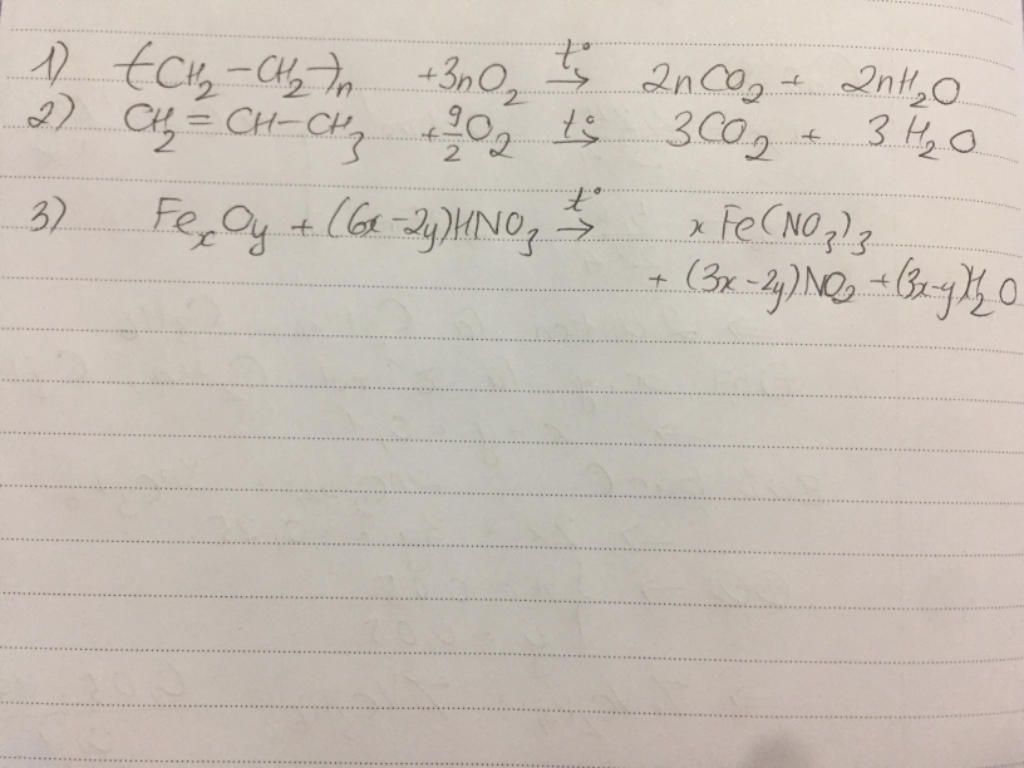 1) (-CH₂-CH₂-)n +3nO₂ t°→ 2nCO₂ + 2nH₂O
2) CH₂=CH-CH₃ +9/2O₂ t°→ 3CO₂ + 3H₂O
3) FexOy + (6x-2y)HNO₃ t°→ xFe(NO₃)₃
+ (3x-2y)NO₂ + (3x-y)H₂O